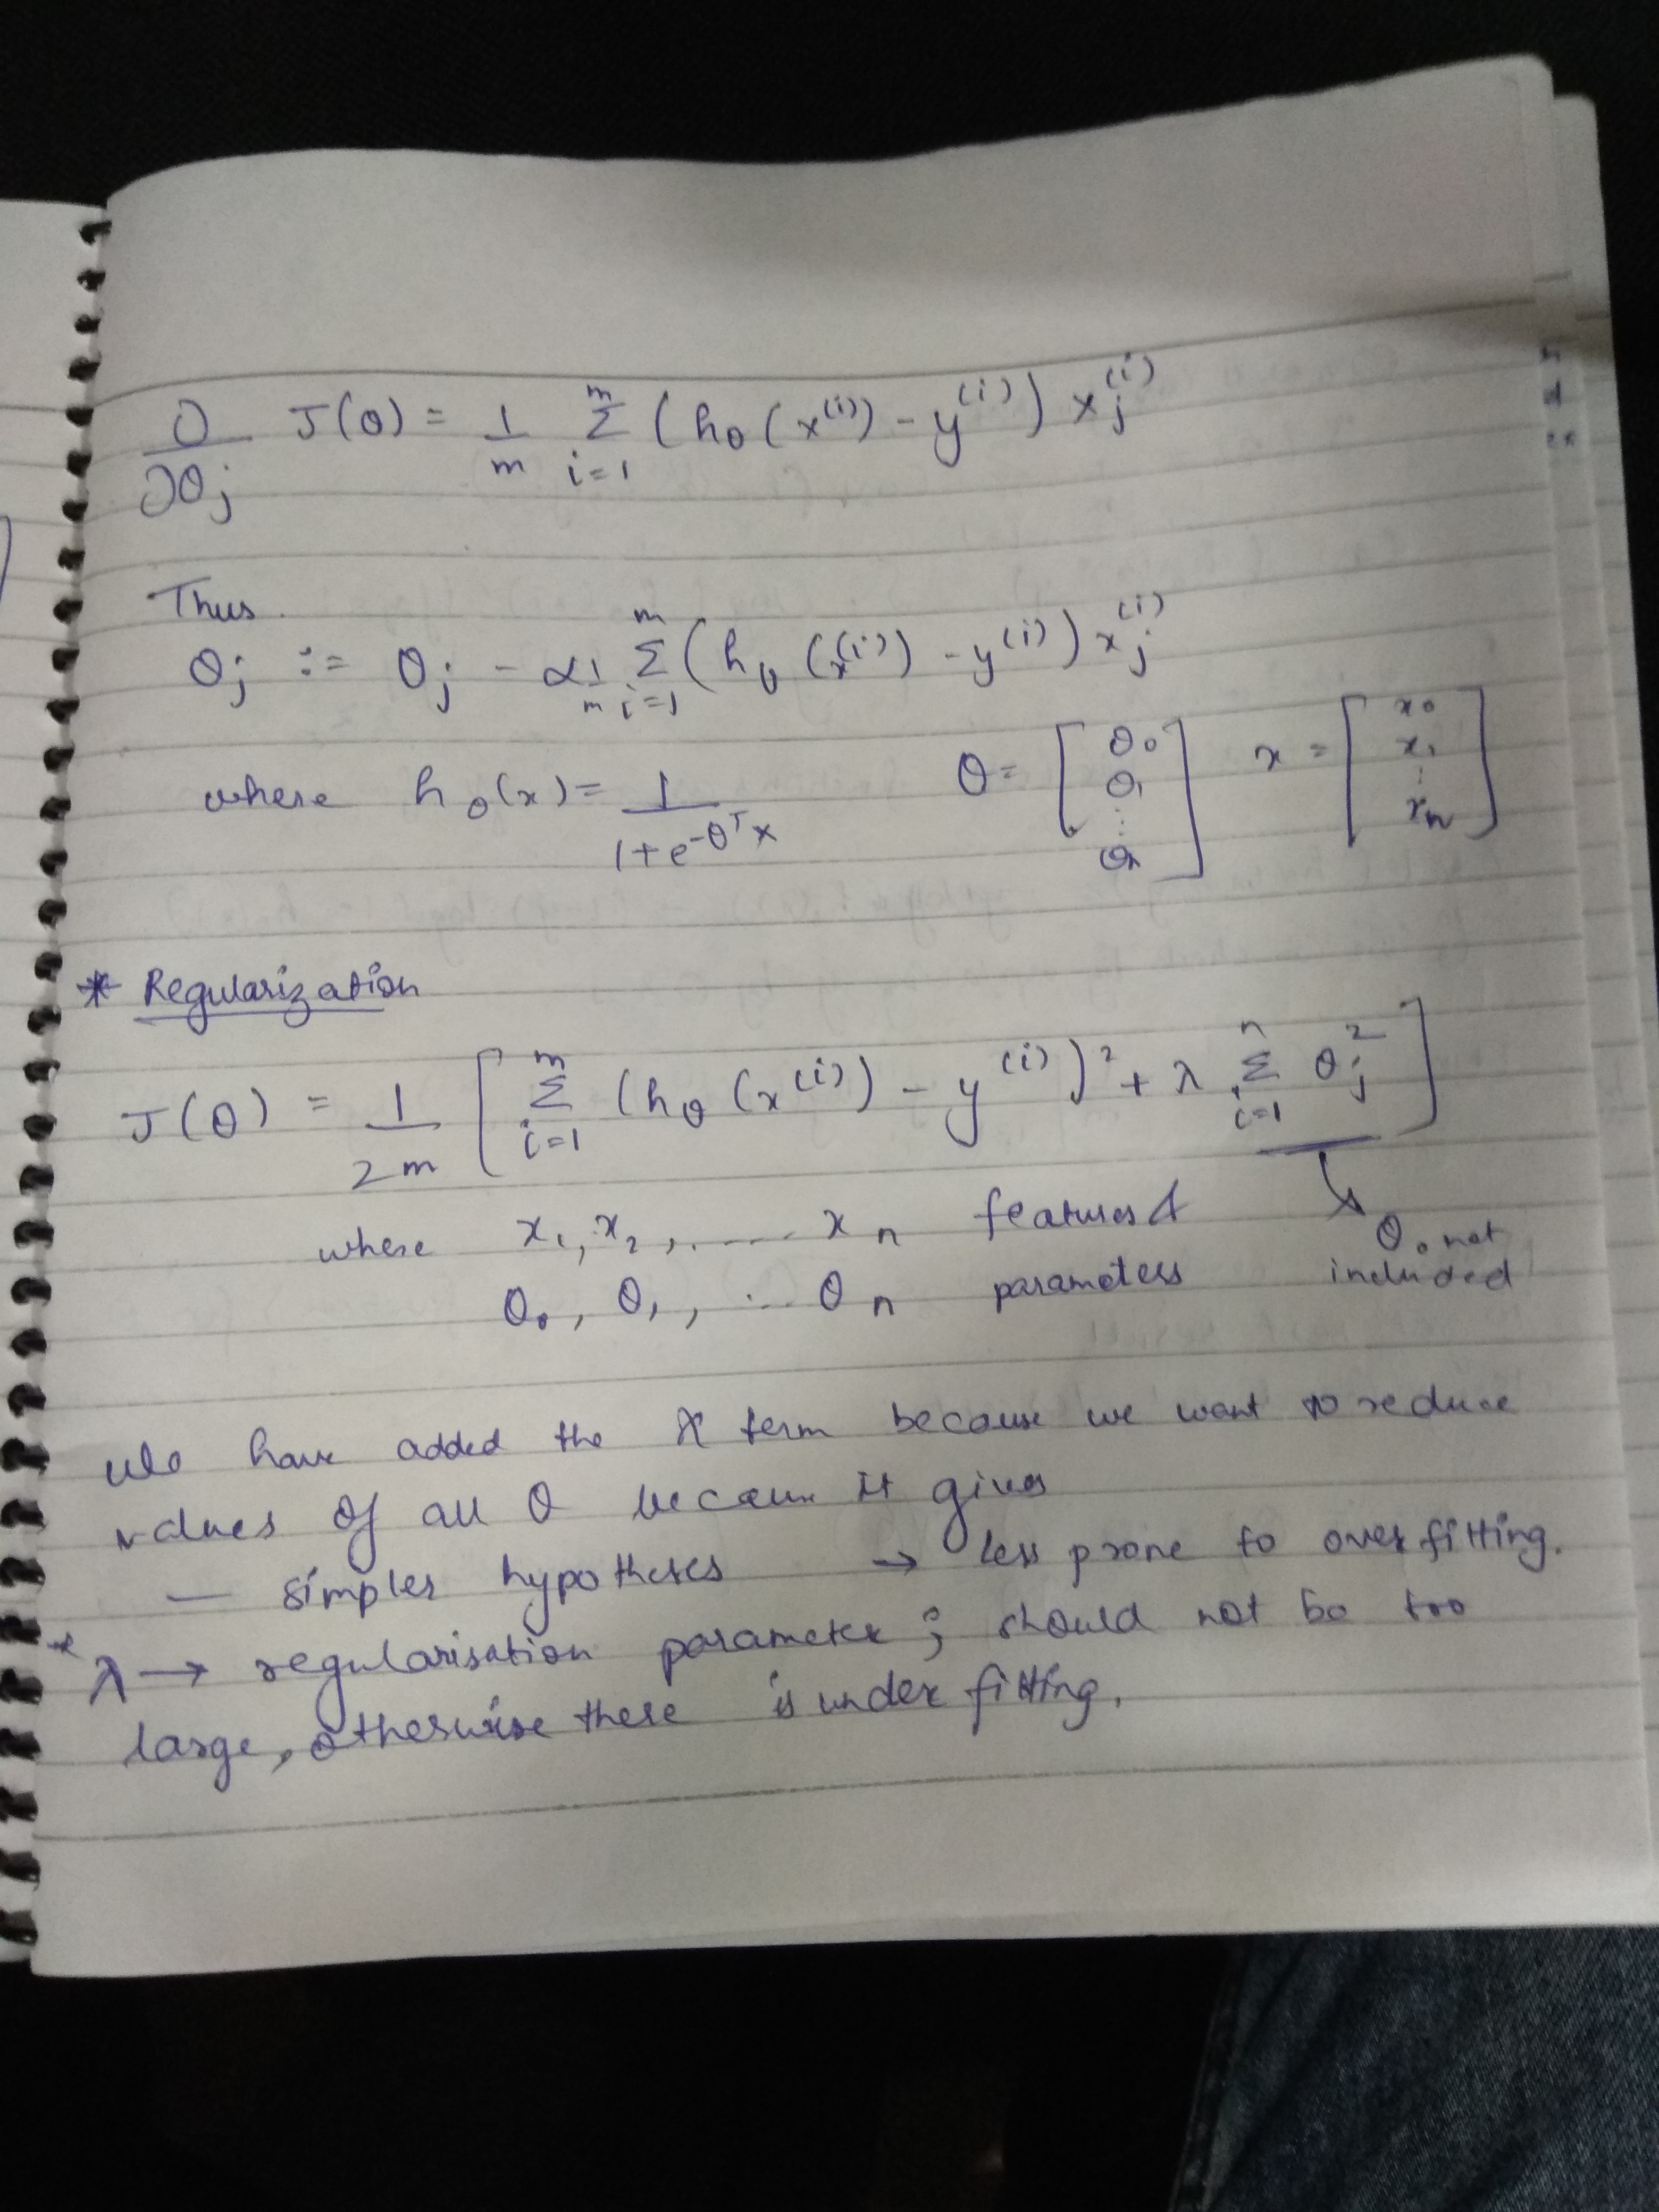 ∂/∂θj J(θ) = 1/m Σ_{i=1}^{m} (hθ(x^(i)) - y^(i)) xj^(i)
Thus
θj := θj - α 1/m Σ_{i=1}^{m} (hθ(x^(i)) - y^(i)) xj^(i)
where hθ(x) = 1/(1+e^{-θ^T x}) θ = [θ0 θ1 ⋮ θn] x = [x0 x1 ⋮ xn]
* Regularization
J(θ) = 1/2m [ Σ_{i=1}^{m} (hθ(x^(i)) - y^(i))² + λ Σ_{i=1}^{n} θj² ]
where x1, x2, ..... xn features &
θ0 not
θ0, θ1, ... θn parameters
included
We have added the λ term because we want to reduce
values of all θ because it gives
— simpler hypotheses → less prone to overfitting.
* λ → regularisation parameter ; should not be too
large, otherwise there is underfitting.